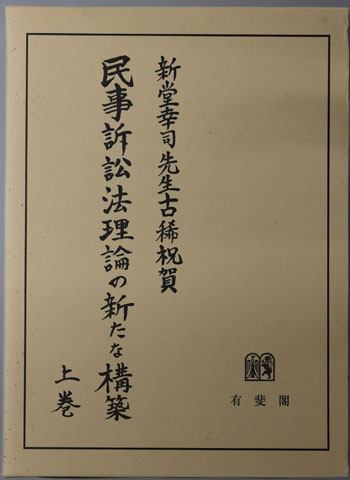 新堂幸司先生古稀祝賀
民事訴訟法理論の新たな構築
上巻
有斐閣